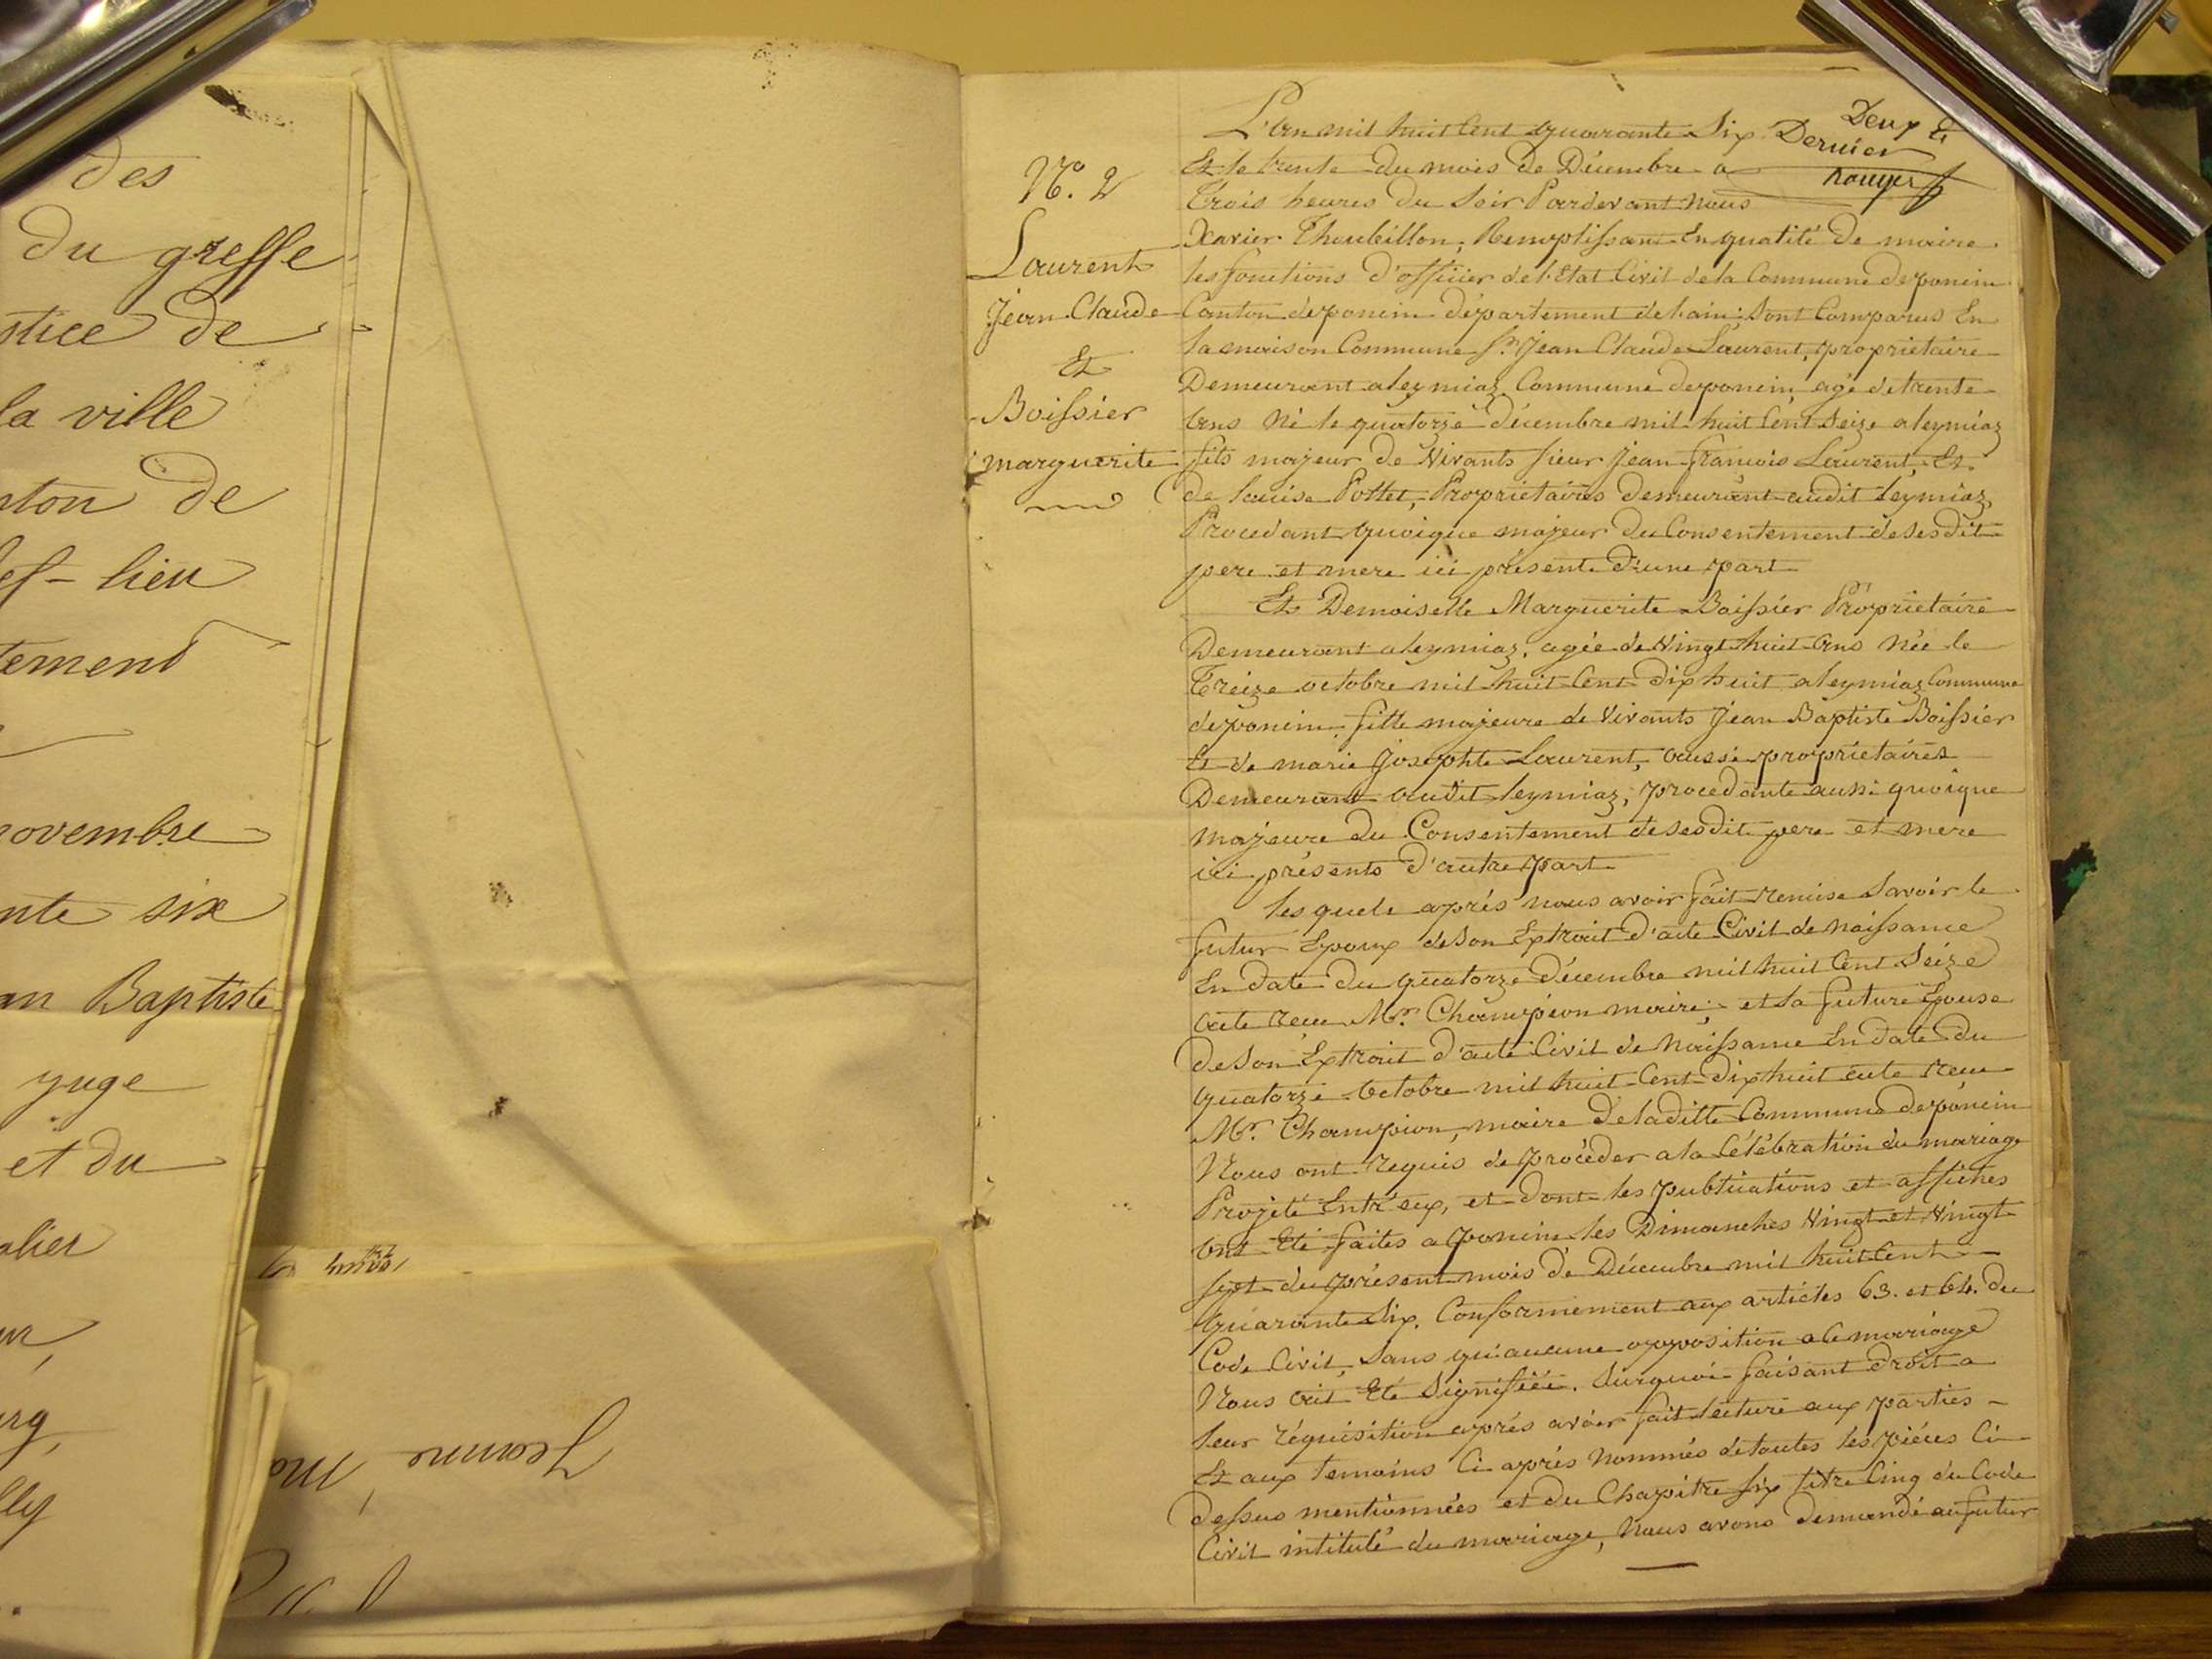 des
du greffe
stice de
la ville
nton de
ef-lieu
tement
novembre
nte six
an Baptiste
yuge
et du
alier
ur,
urg,
lly
Jeanne, Ma
Deux et
Dernier
N.o 2
Laurent
Jean Claude
Et
Boissier
marguerite
L'an mil huit Cent quarante Six
Et le trente du mois de Décembre a
Trois heures du Soir Pardevant Nous
Xavier Thoubillon, Remplissant En qualité de maire
les fonctions d'officier de l'Etat Civil de la Commune deponcin
Canton deponcin département de lain; Sont Comparus En
la maison Commune Sr. Jean Claude Laurent, propriétaire
Demeurant aleymiaz Commune deponcin, agé de trente
ans Né le quatorze décembre mil huit Cent Seize aleymiaz
fils majeur de Vivants sieur Jean françois Laurent, Et
de louise Pottet, Propriétaires demeurant audit leymiaz,
Procedant quoique majeur du Consentement desesdit
pere et mere ici présente d'une part
Et Demoiselle Marguerite Boissier Propriétaire
Demeurant aleymiaz, agée de Vingt huit ans Née le
Treize octobre mil huit Cent dix huit aleymiaz Commune
deponcin, fille majeure de Vivants Jean Baptiste Boissier
Et de marie Josephte Laurent, aussi propriétaires
Demeurant audit leymiaz; procedante aussi quoique
majeure du Consentement desesdit pere et mere
ici présents d'autre part
lesquels aprés nous avoir fait remise Savoir le
futur Epoux deson Extrait d'acte Civil de Naissance
En date du quatorze décembre mil huit Cent Seize
acte reçu Mr. Champion maire; et la future Epouse
deson Extrait d'acte Civil de Naissance En date du
quatorze octobre mil huit Cent dix huit acte reçu
Mr. Champion, maire deladitte Commune deponcin
Nous ont requis de procéder a la Célébration du mariage
Projeté Entr'eux, et dont les publications et affiches
ont Eté faites aponcin les Dimanches Vingt et Vingt
sept du présent mois de Décembre mil huit Cent
quarante Six, Conformement aux articles 63. et 64. du
Code Civil, Sans qu'aucune opposition a ce mariage
Nous ait Eté Signifiée. Surquoi faisant droit a
leur réquisition aprés avoir fait lecture aux parties
Et aux temoins Ci aprés Nommés de toutes les piéces Ci
dessus mentionnées et du Chapitre six titre Cinq du Code
Civil intitulé du mariage, Nous avons demandé au futur